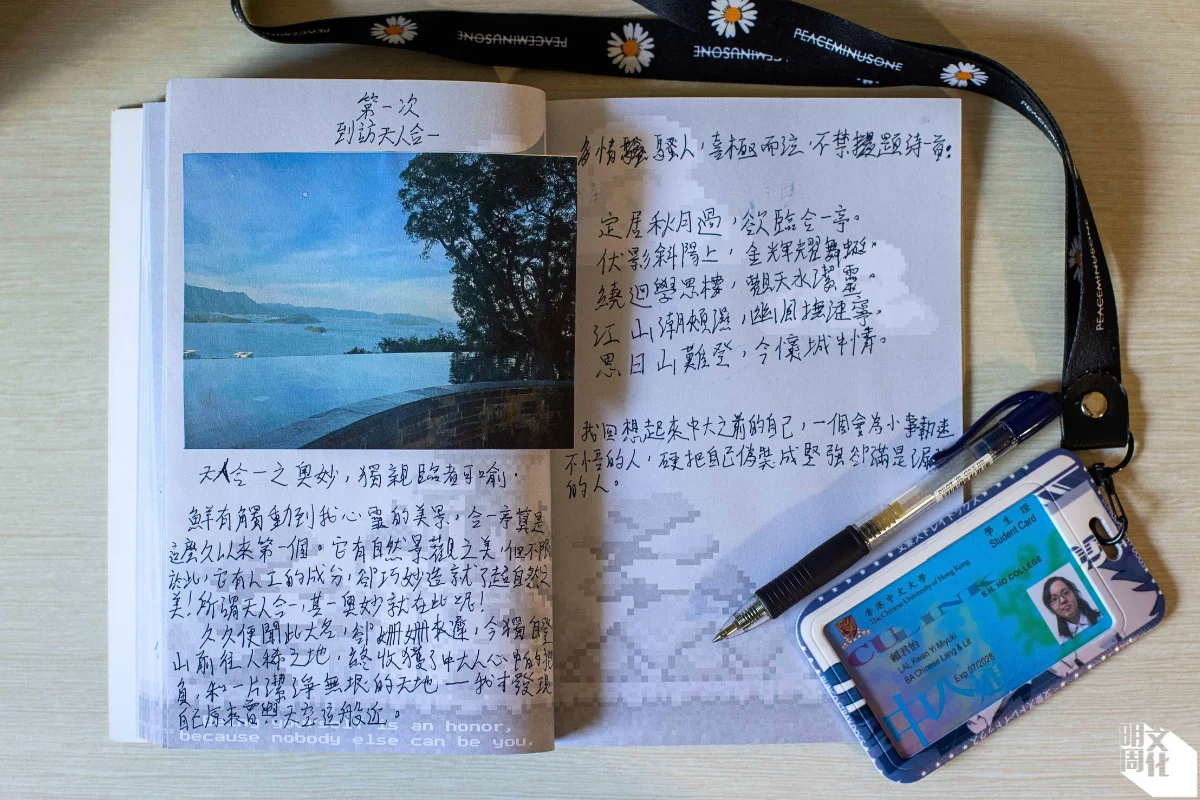 PEACEMINUSONE
PEACEMINUSONE
PEACEMINUSONE
PEACEMINUSONE
PEACEMINUSONE
第一次
到訪天人合一
天人合一之奧妙，獨親臨者可喻。
鮮有觸動到我心靈的美景，合一亭算是
這麼久以來第一個。它有自然景觀之美，但不限
於此，它有人工的成分，卻巧妙造就了超自然之
美！所謂天人合一，其一奧妙就在此呢！
久久俟聞此大名，卻姍姍來遲，今獨自登
山前往人稀之地，終收獲了中大人心中的
和一片潔淨無垠的天地 — 我才發現
自己原來會與天空這般近。
is an honor,
because nobody else can be you.
多情騷人，喜極而泣，不禁題詩一首：
定居秋月過，欲臨合一亭。
伏影斜陽上，金輝耀舞蜓。
繞迴學思樓，觀天水潔靈。
江山潮頻濕，幽風撫漣寧。
思日山難登，今懷城半情。
我回想起來中大之前的自己，一個會為小事執迷
不悟的人，硬把自己偽裝成堅強卻滿是
的人。
學生證
Student Card
香港中文大學
The Chinese University of Hong Kong
S.H. HO COLLEGE
CUHK
賴君怡
LAI, Kwan Yi Miyuki
BA Chinese Lang & Lit
Exp 07/2028
中大
明周文化